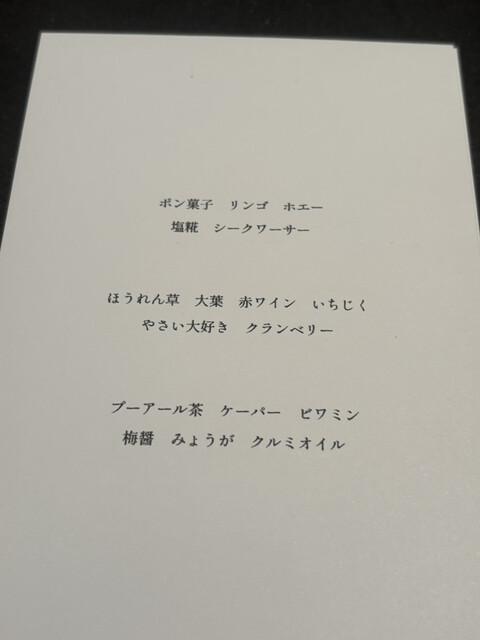 ポン菓子　リンゴ　ホエー
塩糀　シークワーサー
ほうれん草　大葉　赤ワイン　いちじく
やさい大好き　クランベリー
プーアール茶　ケーパー　ビワミン
梅醤　みょうが　クルミオイル